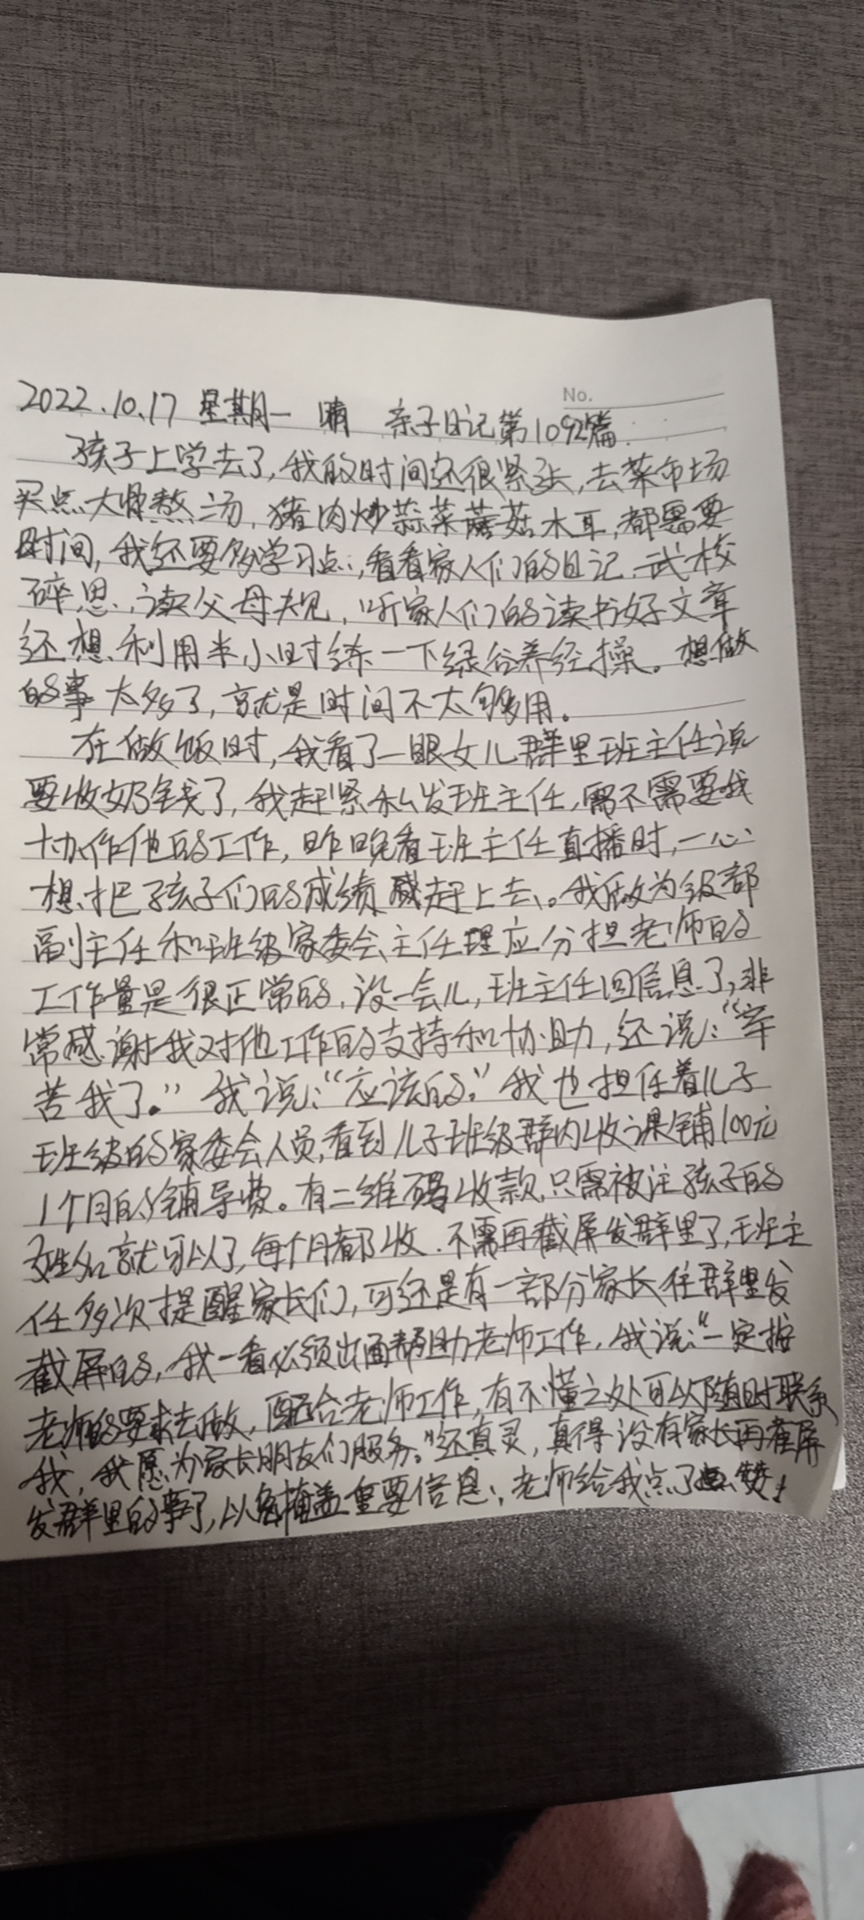 No.
2022.10.17 星期一 晴 亲子日记第1092篇
孩子上学去了,我的时间还很紧张,去菜市场
买点大骨熬汤,猪肉炒蒜菜蘑菇木耳,都需要
时间,我还要多学习点,看看家人们的日记,武校
碎思,读父母规,听家人们的读书好文章
还想利用半小时练一下绿谷养经操。想做
的事太多了,就是时间不太够用。
在做饭时,我看了一眼女儿群里班主任说
要收奶钱了,我赶紧私发班主任,需不需要我
协作他的工作,昨晚看班主任直播时,一心
想把孩子们的成绩赶上去。我做为级部
副主任和班级家委会主任理应分担老师的
工作量是很正常的,没一会儿,班主任回信息了,非
常感谢我对他工作的支持和协助,还说:“辛
苦我了。”我说:“应该的。”我也担任着儿子
班级的家委会人员,看到儿子班级群内收课辅100元
1个月的辅导费。有二维码收款,只需被注孩子的
姓名就可以了,每个月都收.不需再截屏发群里了,班主
任多次提醒家长们,可还是有一部分家长往群里发
截屏的,我一看必须出面帮助老师工作,我说:“一定按
老师的要求去做,配合老师工作,有不懂之处可以随时联系
我,我愿为家长朋友们服务。”还真灵,真得没有家长再截屏
发群里的事了,以免掩盖重要信息,老师给我点了赞!